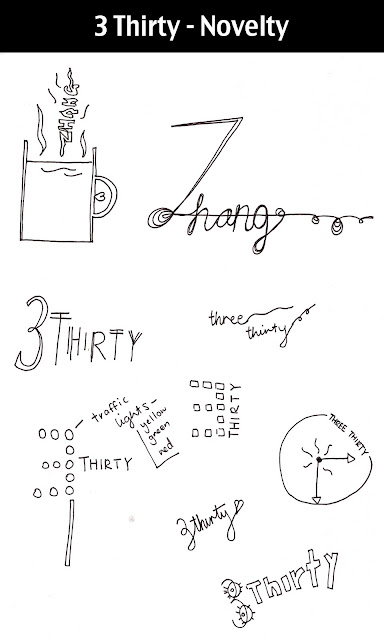 3 Thirty - Novelty
ZHANG
Zhang
3 THIRTY
three
thirty
traffic
lights -
yellow
green
red
THIRTY
3 THIRTY
THREE THIRTY
3 thirty
3 Thirty